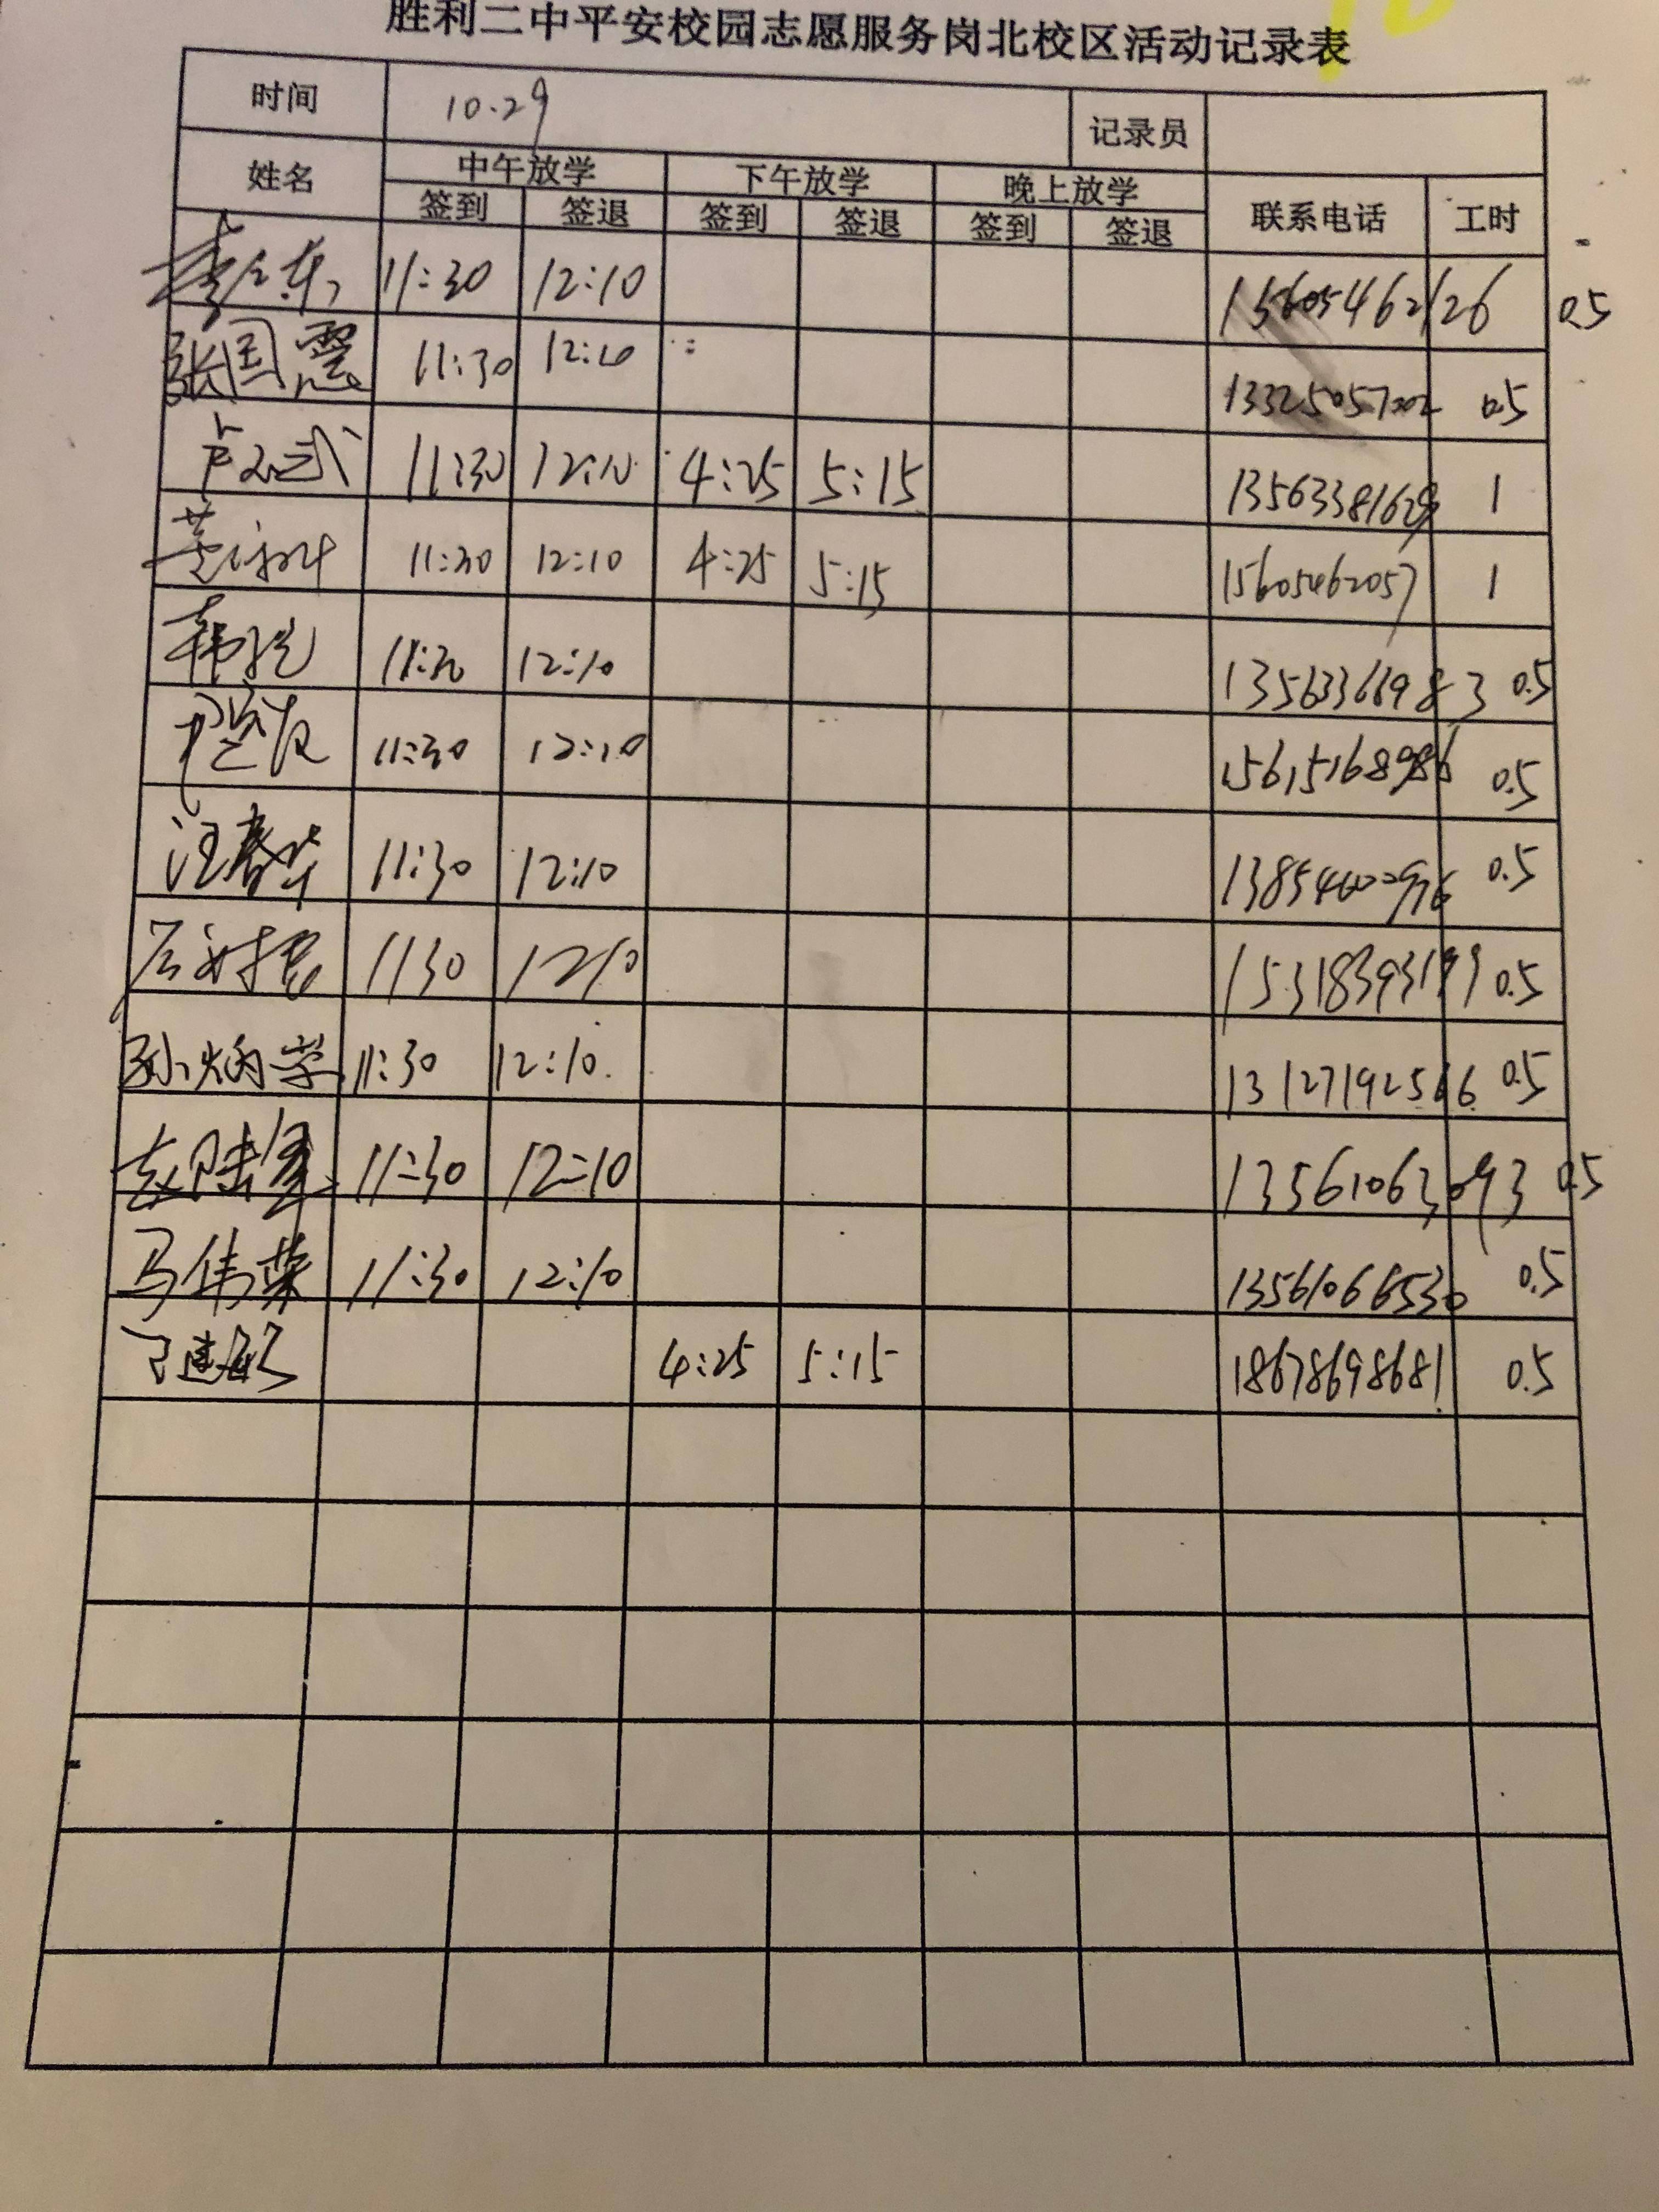 胜利二中平安校园志愿服务岗北校区活动记录表
时间 10.29 记录员
姓名 中午放学 下午放学 晚上放学 联系电话 工时
签到 签退 签到 签退 签到 签退
11:30 12:10 15605462126 0.5
张国震 11:30 12:10 13325057202 0.5
11:30 12:10 4:25 5:15 1
11:30 12:10 4:25 5:15 15605462057 1
11:30 12:10 13563366983 0.5
11:30 12:10 15615168986 0.5
汪春华 11:30 12:10 13854602996 0.5
1130 1210 15318393199 0.5
孙炳学 11:30 12:10. 13127192566 0.5
11:30 12:10 13561063093 0.5
马伟荣 11:30 12:10 13561066530 0.5
4:25 5:15 18678698681 0.5